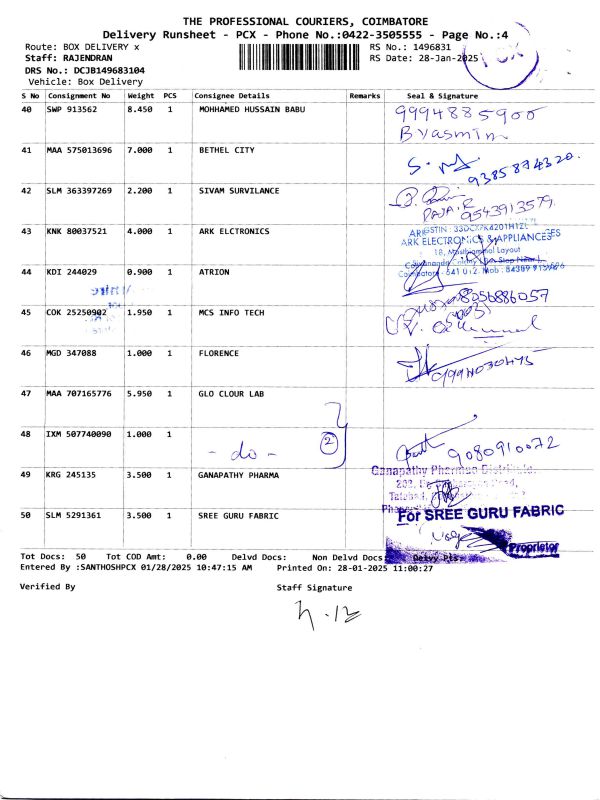 THE PROFESSIONAL COURIERS, COIMBATORE
Delivery Runsheet - PCX - Phone No.:0422-3505555 - Page No.:4
Route: BOX DELIVERY x RS No.: 1496831
Staff: RAJENDRAN RS Date: 28-Jan-2025
DRS No.: DCJB149683104
Vehicle: Box Delivery
S No Consignment No Weight PCS Consignee Details Remarks Seal & Signature
40 SWP 913562 8.450 1 MOHHAMED HUSSAIN BABU 9994885900
B yasmin
41 MAA 575013696 7.000 1 BETHEL CITY
9385874320.
42 SLM 363397269 2.200 1 SIVAM SURVILANCE
RAJA.R 9543913579.
43 KNK 80037521 4.000 1 ARK ELCTRONICS
ARK ELECTRONICS & APPLIANCES
44 KDI 244029 0.900 1 ATRION
8056886057
45 COK 25250902 1.950 1 MCS INFO TECH
46 MGD 347088 1.000 1 FLORENCE
9994030475
47 MAA 707165776 5.950 1 GLO CLOUR LAB
48 IXM 507740090 1.000 1
- do - 2 9080910072
49 KRG 245135 3.500 1 GANAPATHY PHARMA
Ganapathy Pharmaa
50 SLM 5291361 3.500 1 SREE GURU FABRIC For SREE GURU FABRIC
Proprietor
Tot Docs: 50 Tot COD Amt: 0.00 Delvd Docs: Non Delvd Docs: Delvy Pts:
Entered By :SANTHOSHPCX 01/28/2025 10:47:15 AM Printed On: 28-01-2025 11:00:27
Verified By Staff Signature